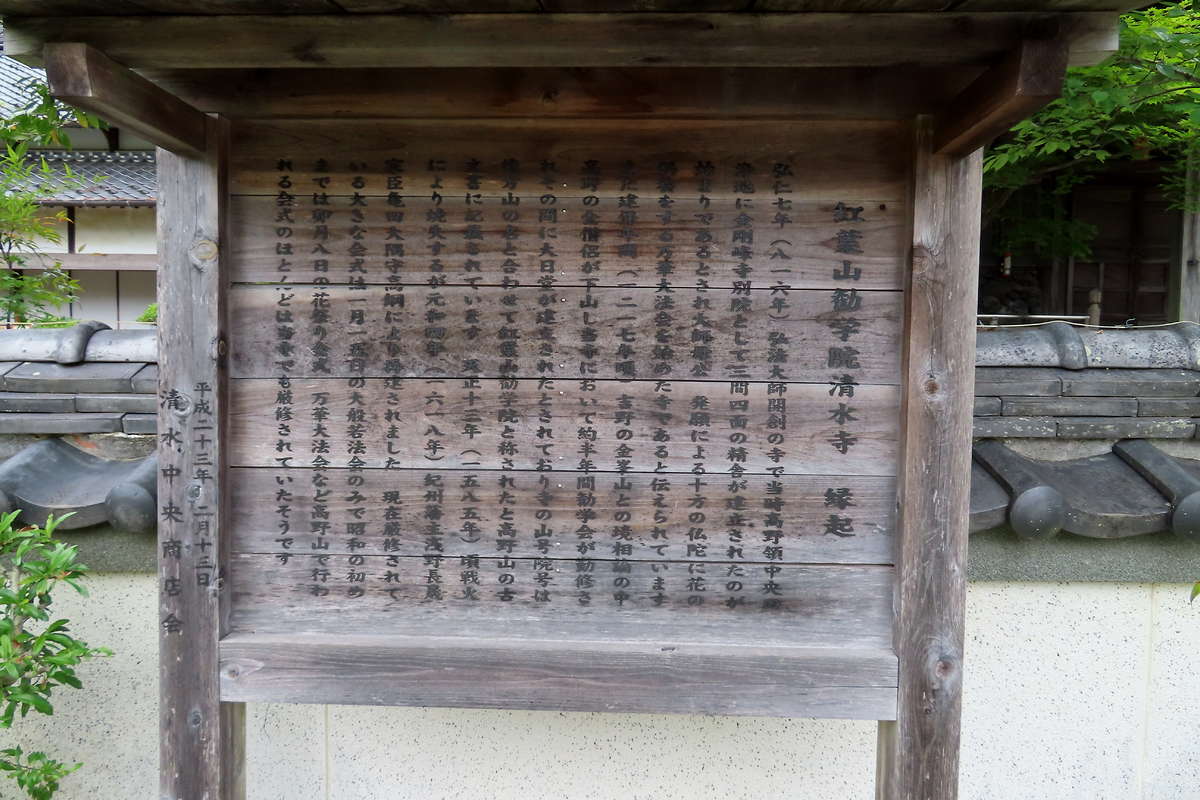 紅葉山勧学院清水寺 縁起
弘仁七年（八一六年）弘法大師開創の寺で当時高野領中央の
に金剛峰寺別院として三間四面の精舎が建立されたのが
始まりであるとされ大師 発願による十方の仏陀に花の
をする万華大法会を始めた寺であると伝えられています
また建保年間（一二一七年頃）吉野の金峯山との境相論の中
高野の全僧侶が下山し当寺において約半年間勧学会が勤修さ
れその間に大日堂が建立されたとされており寺の山号院号は
後方山の名と合わせて紅葉山勧学院と称されたと高野山の古
文書に記載されています 天正十三年（一五八五年）頃戦火
により焼失するが元和四年（一六一八年）紀州藩主浅野長晟
家臣亀田大隅守高綱により再建されました 現在厳修されて
いる大きな会式は一月二百日の大般若法会のみで昭和の初め
までは卯月八日の花祭り会式 万華大法会など高野山で行わ
れる会式のほとんどは当寺でも厳修されていたそうです
平成二十三年 二月十三日
清水中央商店会